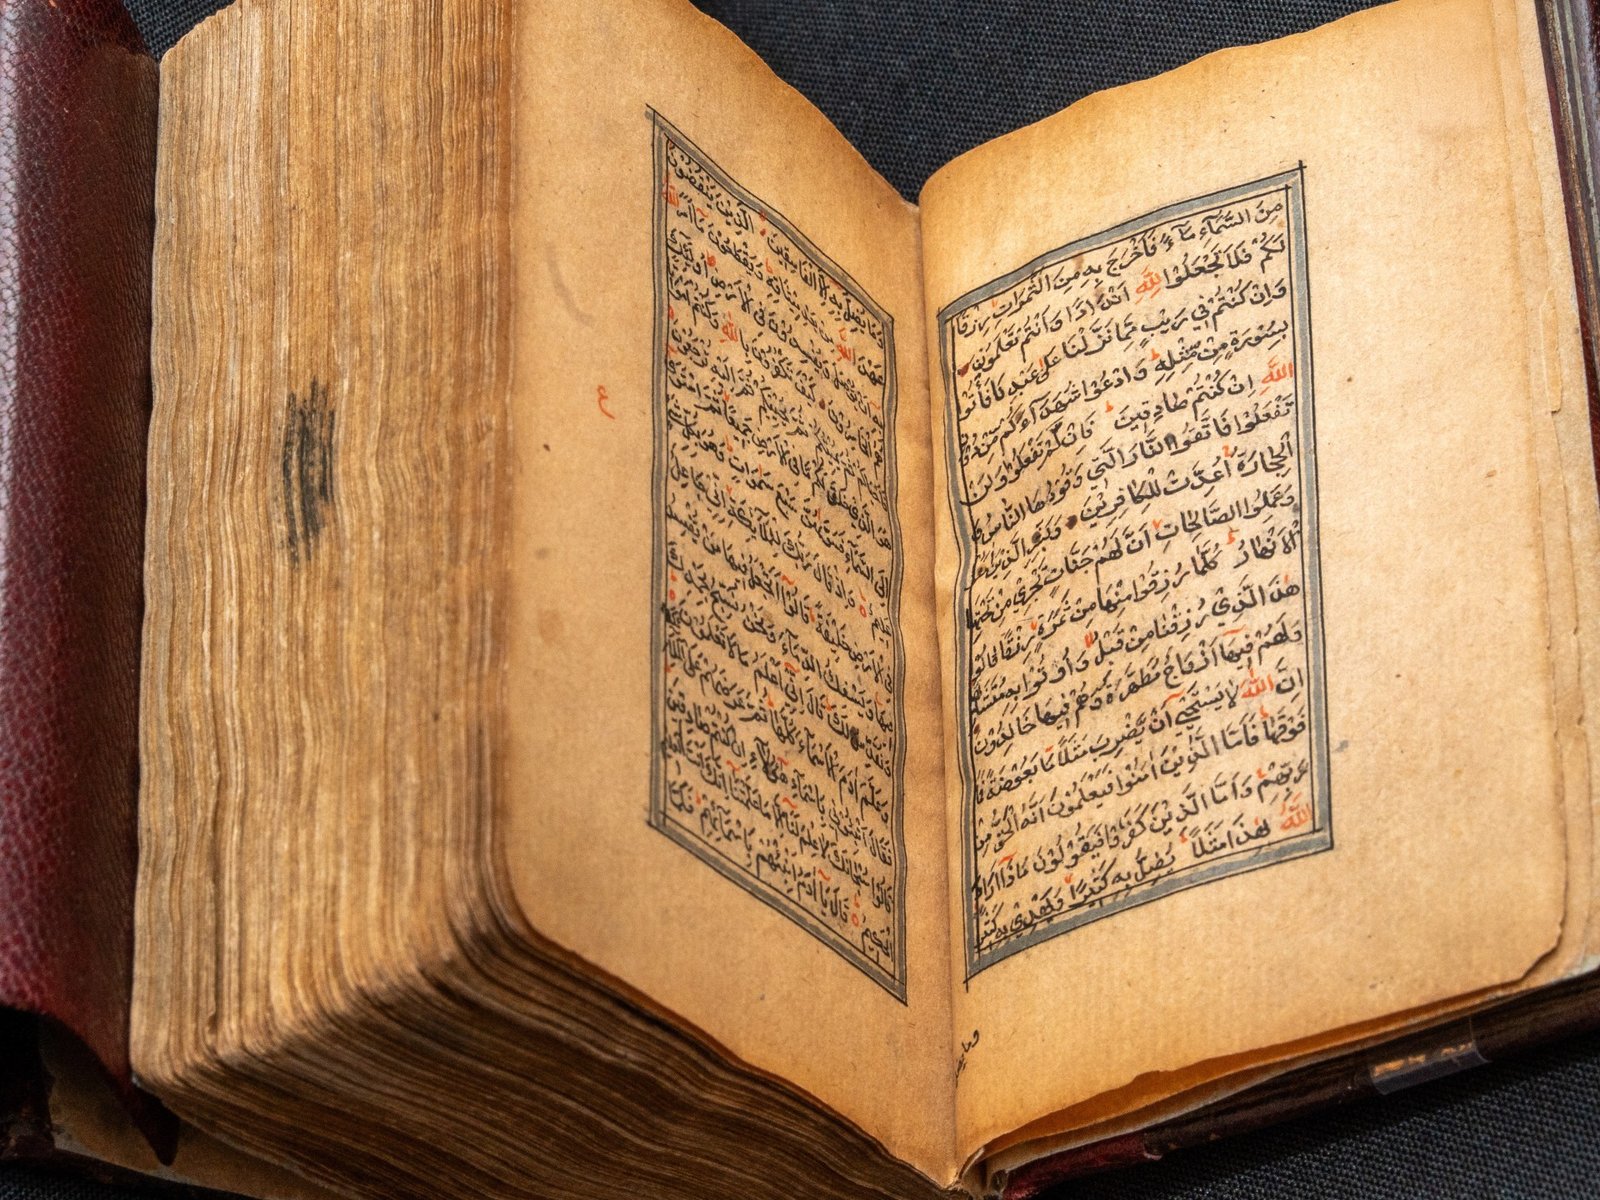 مِنَ السَّمَآءِ مَآءً فَاَخْرَجَ بِهِ مِنَ الثَّمَرَاتِ رِزْقًا
لَكُمْ فَلَا تَجْعَلُوْا لِلّٰهِ اَنْدَادًا وَاَنْتُمْ تَعْلَمُوْنَ
وَاِنْ كُنْتُمْ فِيْ رَيْبٍ مِمَّا نَزَّلْنَا عَلٰى عَبْدِنَا فَاْتُوْا
بِسُوْرَةٍ مِنْ مِثْلِهِ وَادْعُوْا شُهَدَآءَكُمْ مِنْ دُوْنِ
اللّٰهِ اِنْ كُنْتُمْ صَادِقِيْنَ فَاِنْ لَمْ تَفْعَلُوْا وَلَنْ
تَفْعَلُوْا فَاتَّقُوا النَّارَ الَّتِيْ وَقُوْدُهَا النَّاسُ وَ
الْحِجَارَةُ اُعِدَّتْ لِلْكَافِرِيْنَ وَبَشِّرِ الَّذِيْنَ اٰمَنُوْا
وَعَمِلُوا الصَّالِحَاتِ اَنَّ لَهُمْ جَنَّاتٍ تَجْرِيْ مِنْ تَحْتِهَا
الْاَنْهَارُ كُلَّمَا رُزِقُوْا مِنْهَا مِنْ ثَمَرَةٍ رِزْقًا قَالُوْا
هٰذَا الَّذِيْ رُزِقْنَا مِنْ قَبْلُ وَاُوْتُوْا بِهِ مُتَشَابِهًا
وَلَهُمْ فِيْهَا اَزْوَاجٌ مُطَهَّرَةٌ وَهُمْ فِيْهَا خَالِدُوْنَ
اِنَّ اللّٰهَ لَا يَسْتَحْيِيْ اَنْ يَضْرِبَ مَثَلًا مَا بَعُوْضَةً فَمَا
فَوْقَهَا فَاَمَّا الَّذِيْنَ اٰمَنُوْا فَيَعْلَمُوْنَ اَنَّهُ الْحَقُّ مِنْ
رَبِّهِمْ وَاَمَّا الَّذِيْنَ كَفَرُوْا فَيَقُوْلُوْنَ مَاذَا اَرَادَ
اللّٰهُ بِهٰذَا مَثَلًا يُضِلُّ بِهِ كَثِيْرًا وَيَهْدِيْ بِهِ كَثِيْرًا
وَمَا يُضِلُّ بِهِ اِلَّا الْفَاسِقِيْنَ الَّذِيْنَ يَنْقُضُوْنَ
عَهْدَ اللّٰهِ مِنْ بَعْدِ مِيْثَاقِهِ وَيَقْطَعُوْنَ مَا اَمَرَ اللّٰهُ
بِهِ اَنْ يُوْصَلَ وَيُفْسِدُوْنَ فِي الْاَرْضِ اُولٰئِكَ
هُمُ الْخَاسِرُوْنَ كَيْفَ تَكْفُرُوْنَ بِاللّٰهِ وَكُنْتُمْ اَمْوَاتًا
ثُمَّ يُحْيِيْكُمْ ثُمَّ اِلَيْهِ تُرْجَعُوْنَ
هُوَ الَّذِيْ خَلَقَ لَكُمْ مَا فِي الْاَرْضِ جَمِيْعًا ثُمَّ اسْتَوٰى
اِلَى السَّمَآءِ سَبْعَ سَمٰوَاتٍ وَهُوَ بِكُلِّ شَيْءٍ
عَلِيْمٌ وَاِذْ قَالَ رَبُّكَ لِلْمَلٰئِكَةِ اِنِّيْ جَاعِلٌ
فِي الْاَرْضِ خَلِيْفَةً قَالُوْا اَتَجْعَلُ فِيْهَا مَنْ يُفْسِدُ
فِيْهَا وَيَسْفِكُ الدِّمَآءَ وَنَحْنُ نُسَبِّحُ بِحَمْدِكَ
وَنُقَدِّسُ لَكَ قَالَ اِنِّيْ اَعْلَمُ مَا لَا تَعْلَمُوْنَ
وَعَلَّمَ اٰدَمَ الْاَسْمَآءَ كُلَّهَا ثُمَّ عَرَضَهُمْ عَلَى الْمَلٰئِكَةِ
فَقَالَ اَنْبِئُوْنِيْ بِاَسْمَآءِ هٰؤُلَآءِ اِنْ كُنْتُمْ صَادِقِيْنَ
قَالُوْا سُبْحَانَكَ لَا عِلْمَ لَنَا اِلَّا مَا عَلَّمْتَنَا اِنَّكَ اَنْتَ الْعَلِيْمُ
الْحَكِيْمُ قَالَ يَا اٰدَمُ اَنْبِئْهُمْ بِاَسْمَآئِهِمْ فَلَمَّا
ع